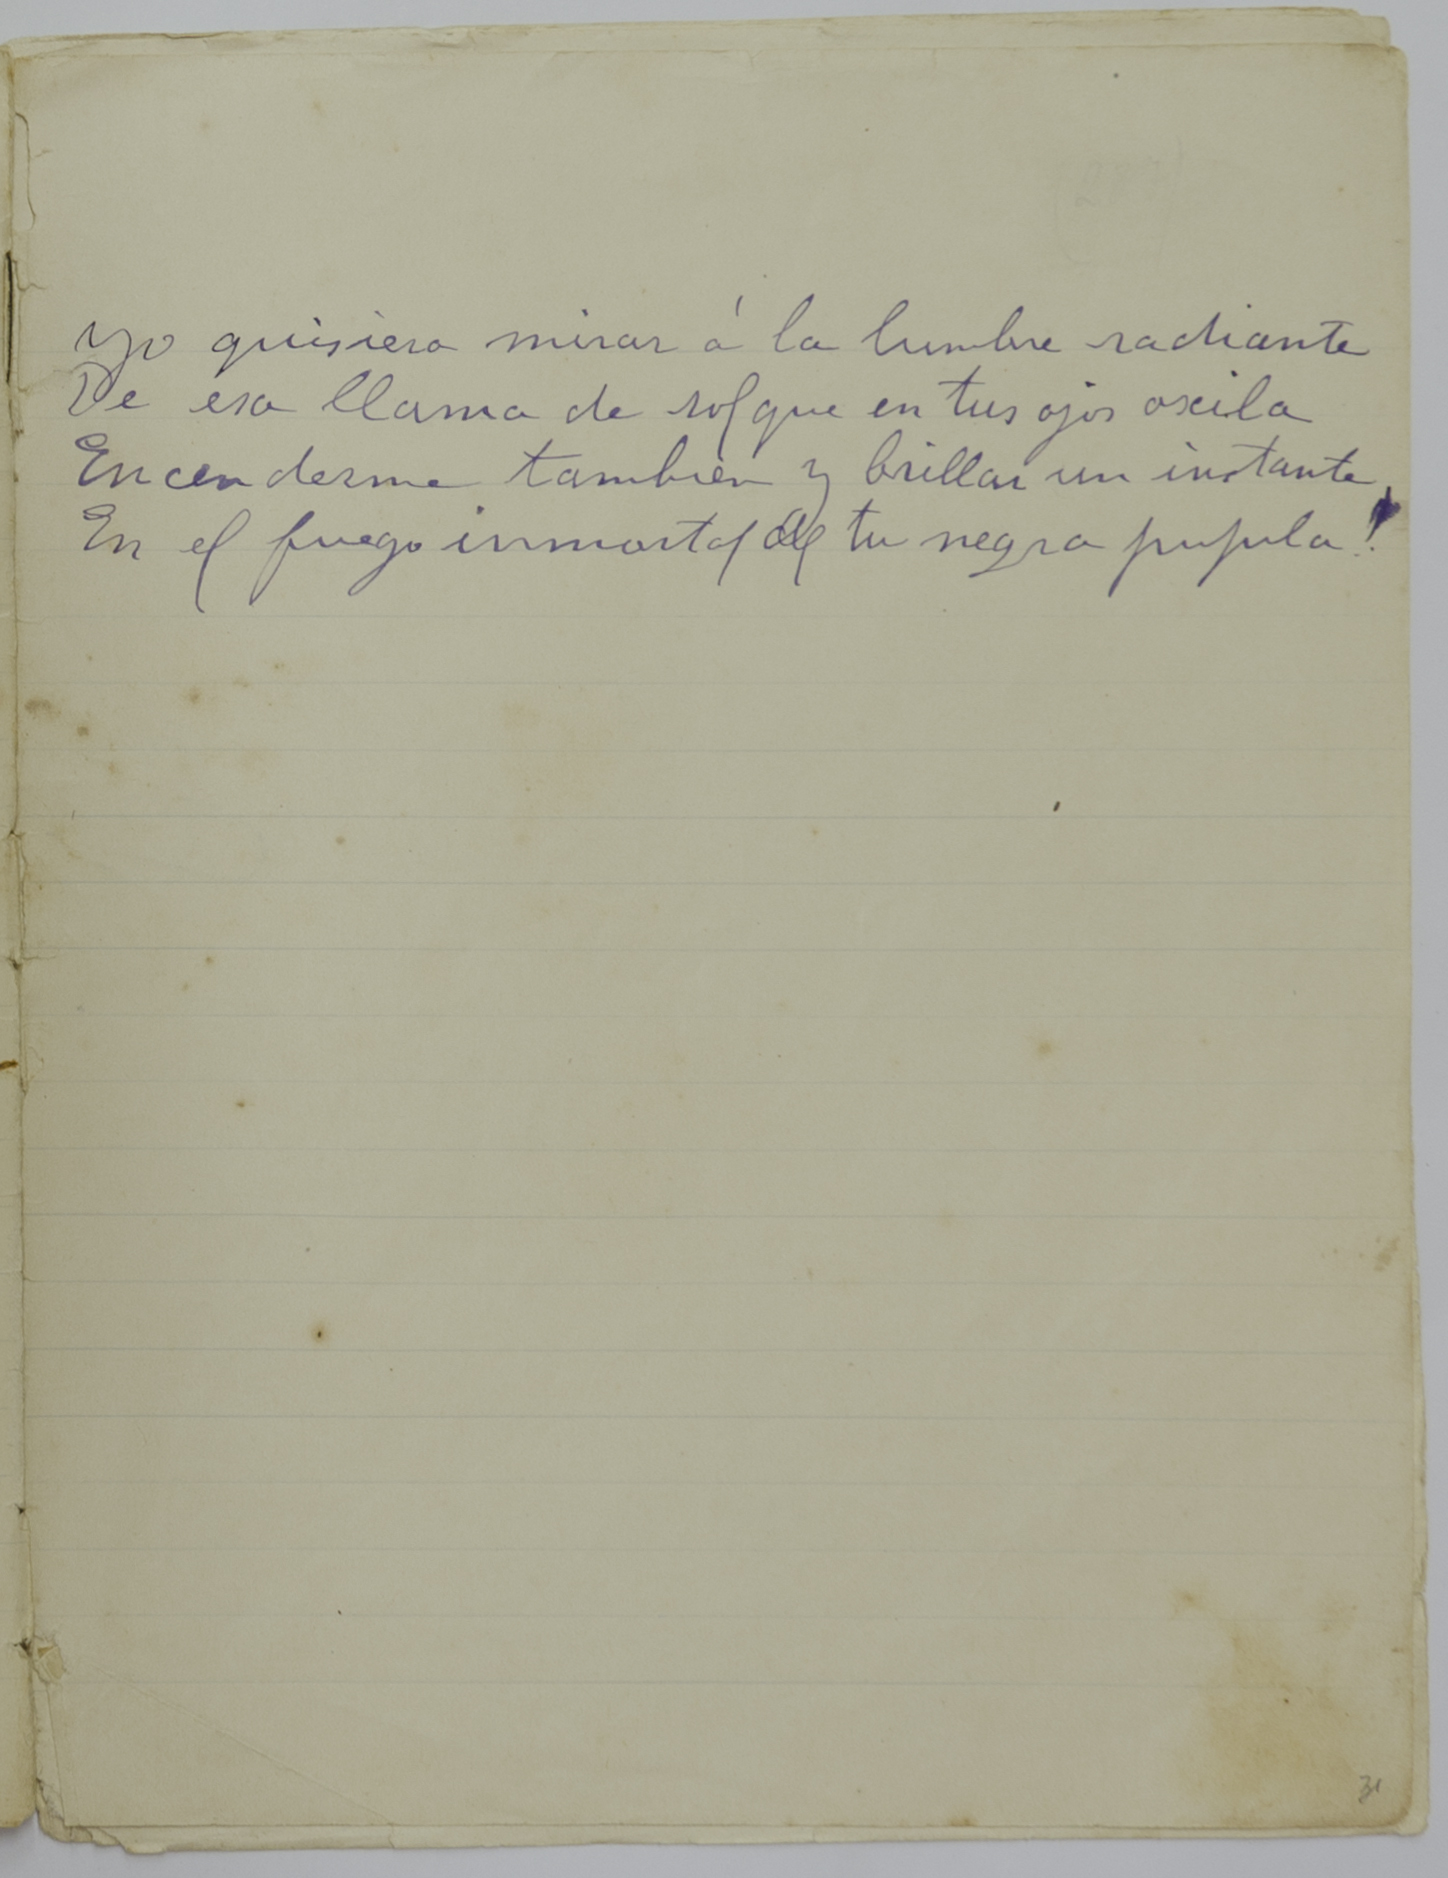 Yo quisiera mirar á la lumbre radiante
De esa llama de sol que en tus ojos oxila
Encenderme tambien y brillar un instante
En el fuego inmortal de tu negra pupula!
31